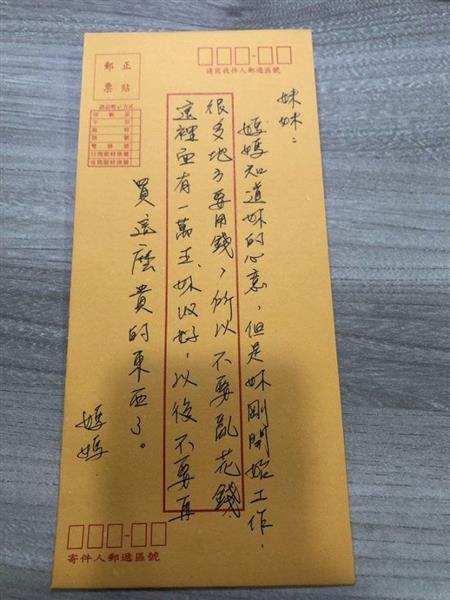 請寫收件人郵遞區號
正貼
郵票
妹妹：
媽媽知道妹的心意，但是妹剛開始工作，
很多地方要用錢，所以不要亂花錢
這裡面有一萬五、妹收好，以後不要再
買這麼貴的東西了。
媽媽
寄件人郵遞區號